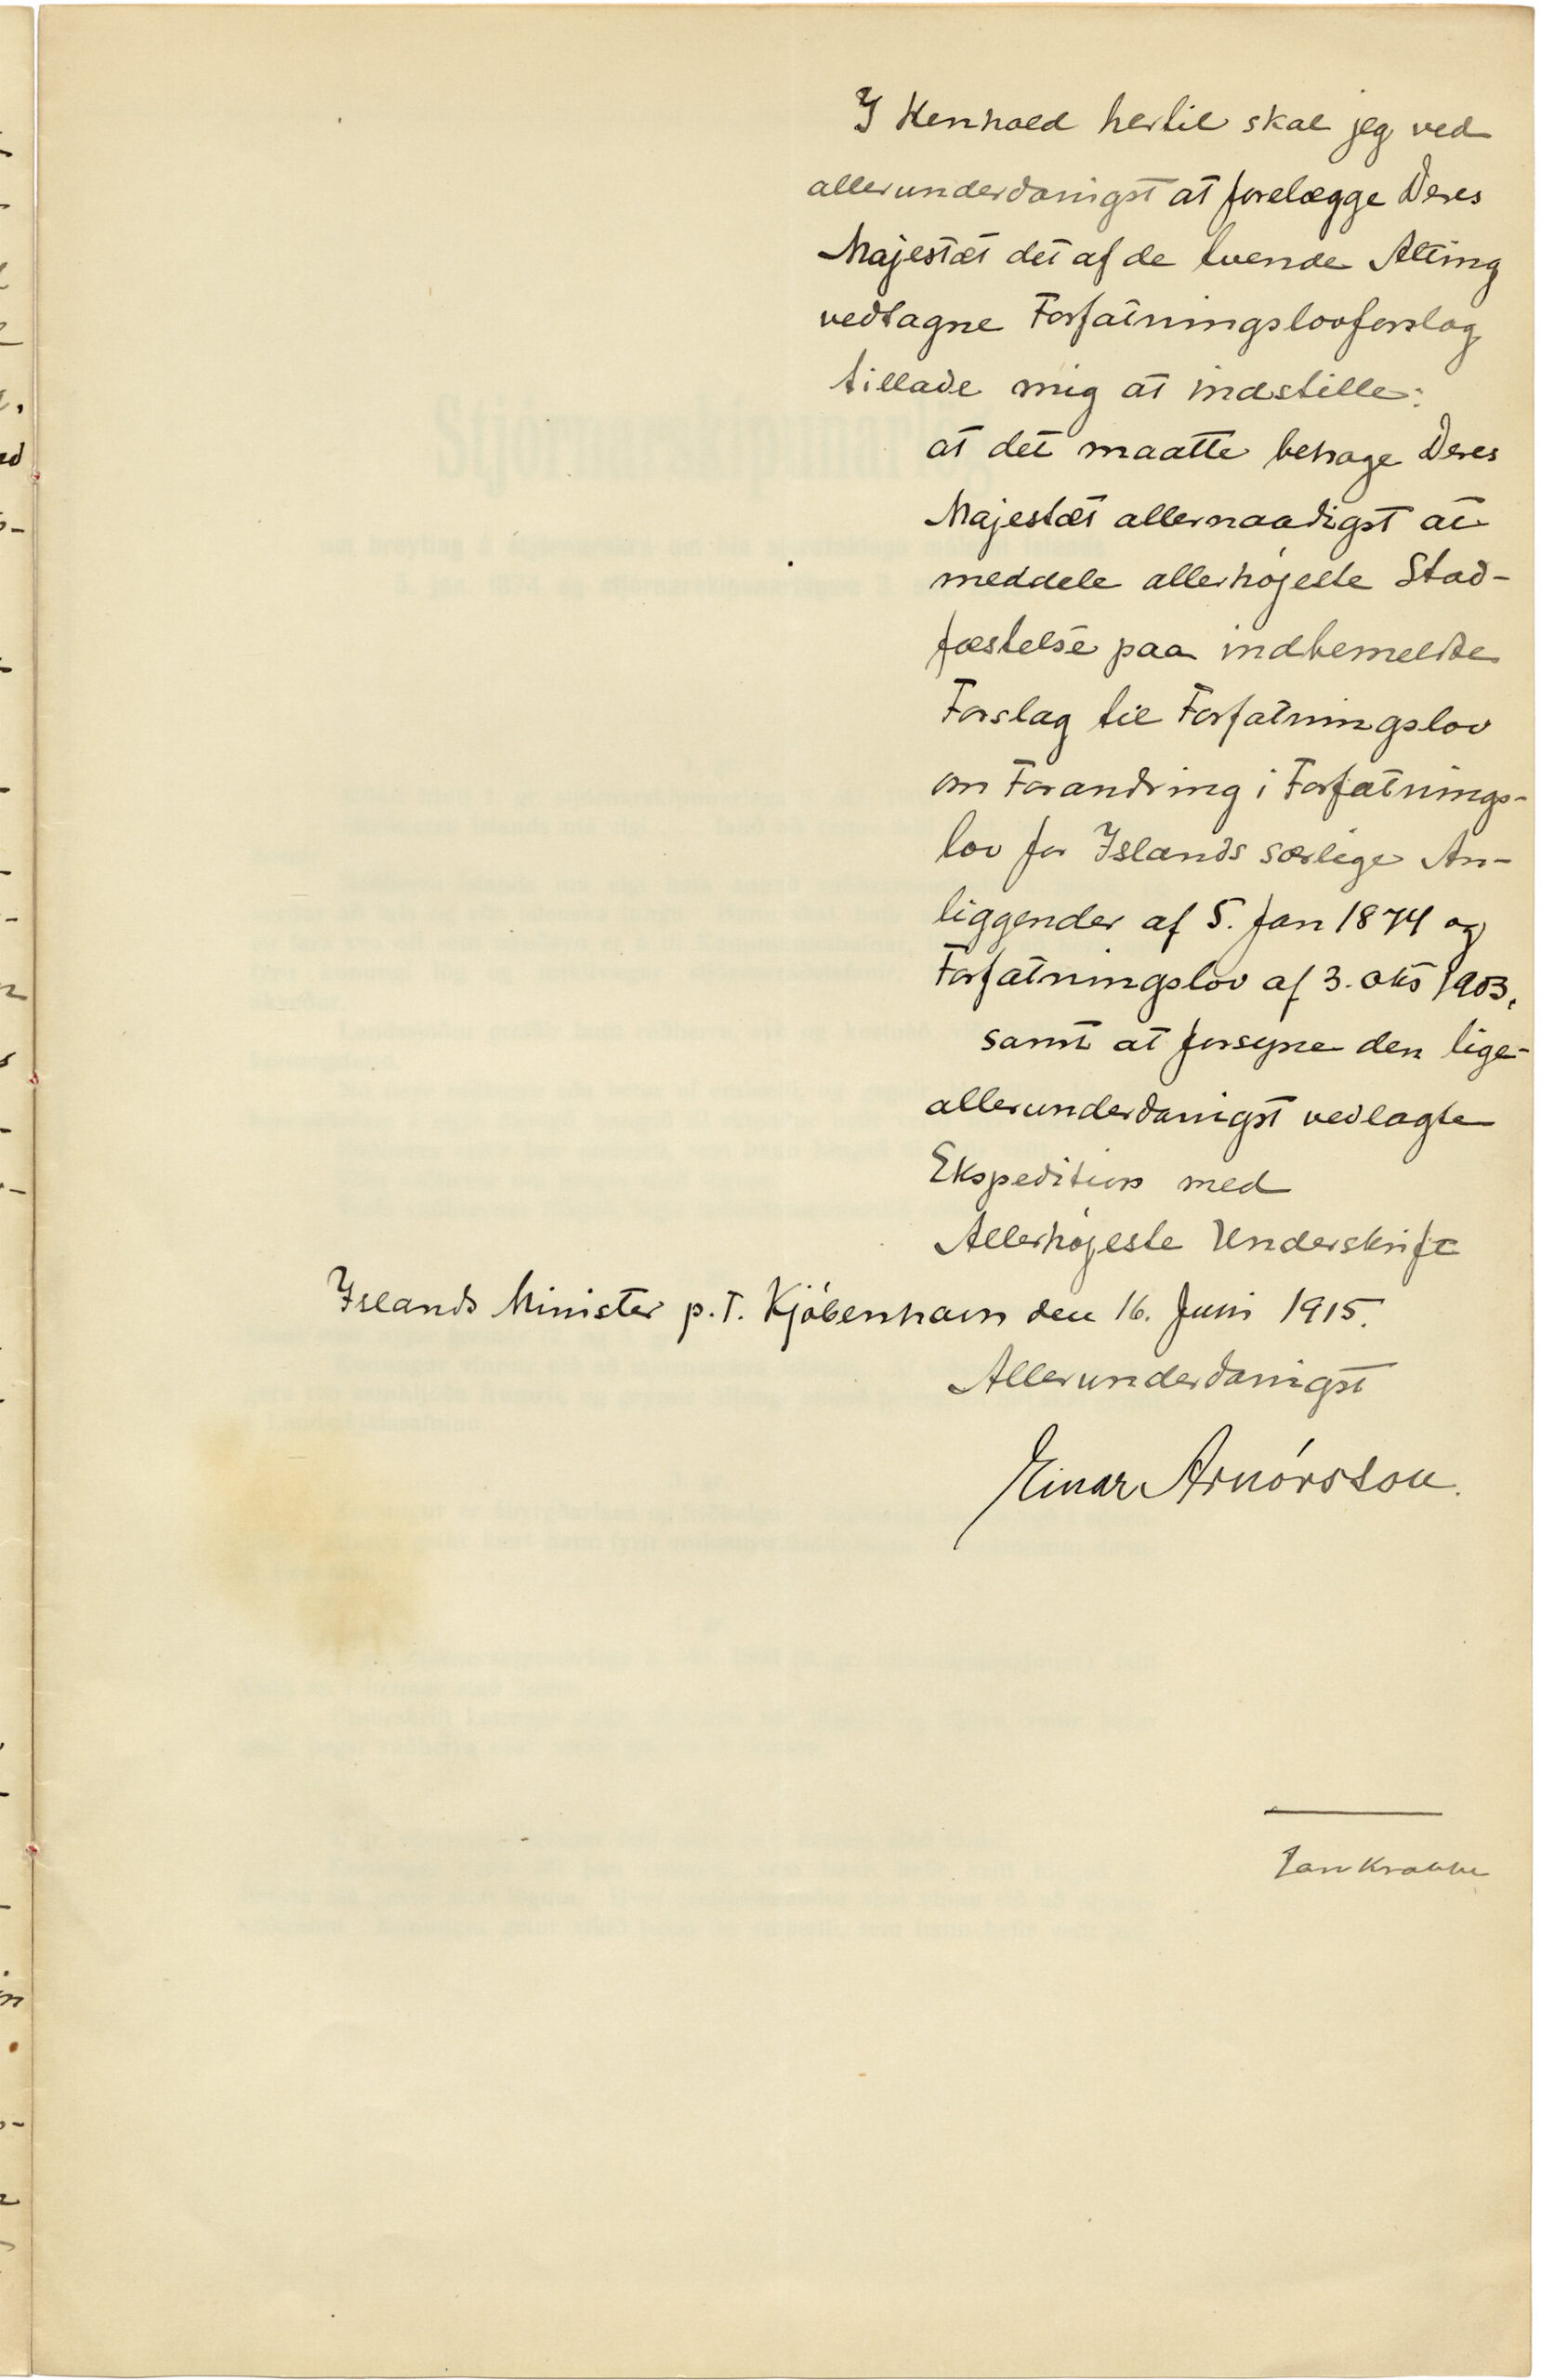 I Henhold hertil skal jeg ved
allerunderdanigst at forelægge Deres
Majestæt det af de tvende Alting
vedtagne Forfatningslovforslag
tillade mig at indstille:
at det maatte behage Deres
Majestæt allernaadigst at
meddele allerhøjeste Stad-
fæstelse paa indbemeldte
Forslag til Forfatningslov
om Forandring i Forfatnings-
lov for Islands særlige An-
liggender af 5. Jan 1874 og
Forfatningslov af 3. okt 1903,
samt at forsyne den lige-
allerunderdanigst vedlagte
Ekspedition med
Allerhøjeste Underskrift
Islands Minister p.T. Kjöbenhavn den 16. Juni 1915.
Allerunderdanigst
Einar Arnórsson.
Jón Krabbe